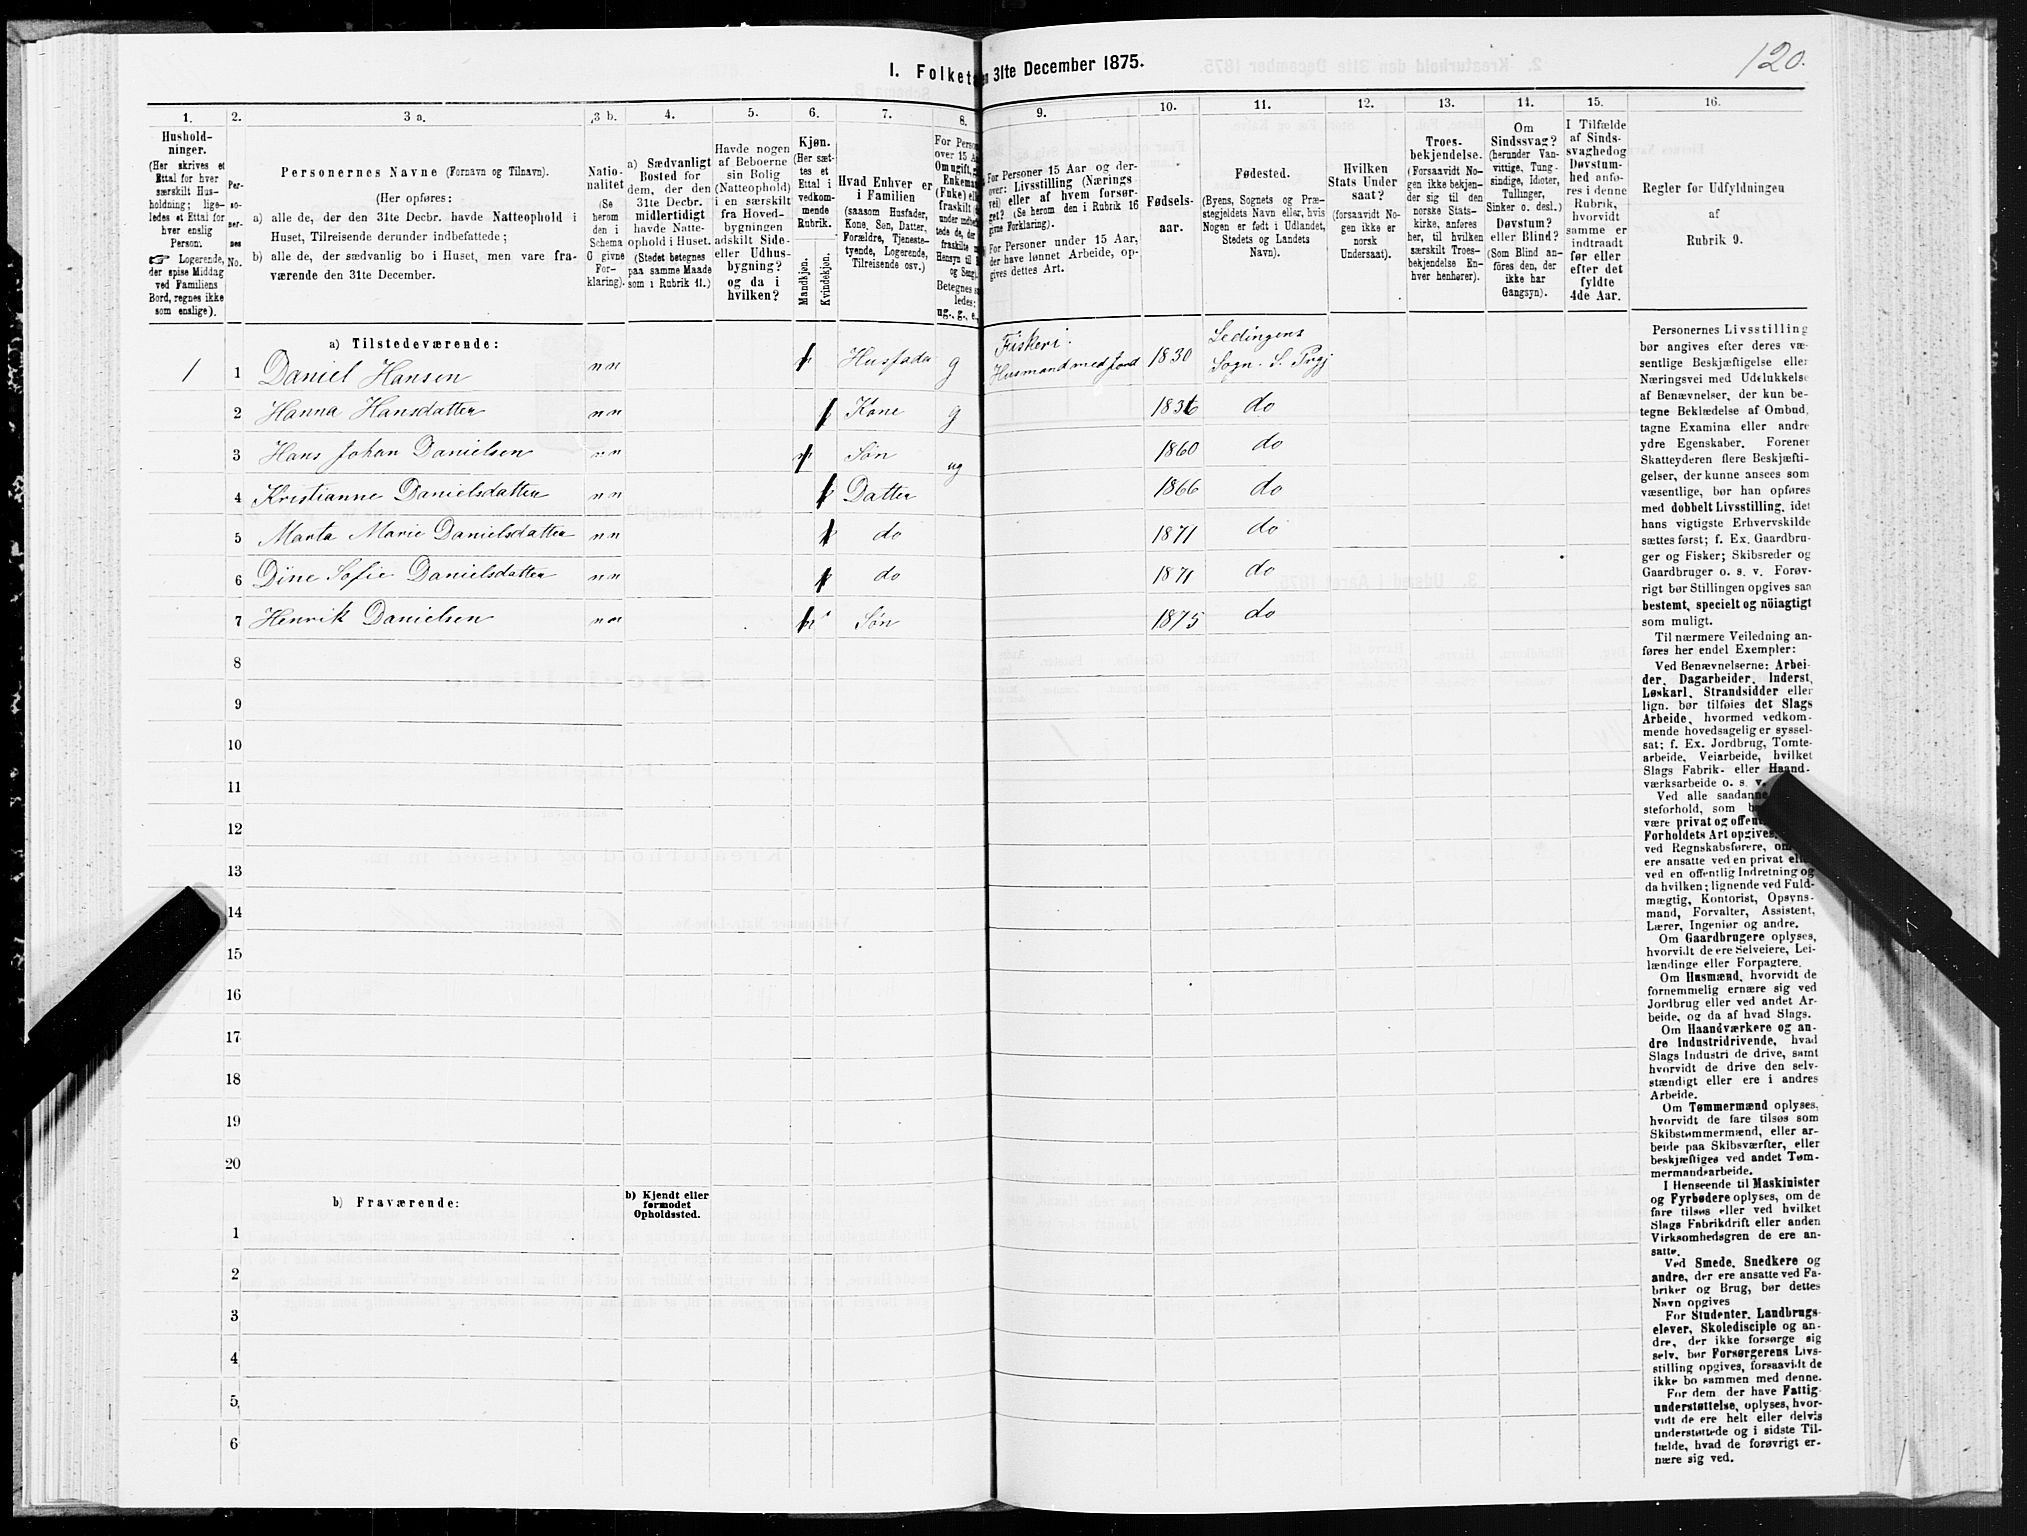 I. Folketæ
en 31te December 1875.
120.
1.
2.
3 a.
3 b.
4.
5.
6.
7.
8.
9.
10.
11.
12.
13.
14.
15.
16.
Hushold-
ninger.
(Her skrives et
Ettal for hver
særskilt Hus-
holdning; lige-
ledes et Ettal for
hver enslig
Person.
☞ Logerende,
der spise Middag
ved Familiens
Bord, regnes ikke
som enslige).
Per-
so-
ner-
nes
No.
Personernes Navne (Fornavn og Tilnavn).
(Her opføres:
a) alle de, der den 31te Decbr. havde Natteophold i
Huset, Tilreisende derunder indbefattede;
b) alle de, der sædvanlig bo i Huset, men vare fra-
værende den 31te December.
Natio-
nalitet
(Se
herom
den i
Schema
G givne
For-
klaring).
a) Sædvanligt
Bosted for
dem, der den
31te Decbr.
midlertidigt
havde Natte-
ophold i Huset.
(Stedet betegnes
paa samme Maade
som i Rubrik 11.)
Havde nogen
af Beboerne
sin Bolig
(Natteophold)
i en særskilt
fra Hoved-
bygningen
adskilt Side-
eller Udhus-
bygning?
og da i
hvilken?
Kjøn.
(Her sæt-
tes et
Ettal i
vedkom-
mende
Rubrik.
Mandkjøn.
Kvindekjøn.
Hvad Enhver er
i Familien
(saasom Husfader,
Kone, Søn, Datter,
Forældre, Tjeneste-
tyende, Logerende,
Tilreisende osv.)
For Person
over 15 A
Om ugift, g
Enkeman
(Fuke) el
fraskilt
Betegnes s
ledes:
ug., g., e.,
For Personer 15 Aar og der-
over: Livsstilling (Nærings
vei) eller af hvem forsør-
get? (Se herom den i Rubrik 16
givne Forklaring).
For Personer under 15 Aar,
der have lønnet Arbeide, op-
gives dettes Art.
Fødsels-
aar.
Fødested.
(Byens, Sognets og Præ-
stegjeldets Navn eller, hvis
Nogen er født i Udlandet,
Stedets og Landets
Navn).
Hvilken
Stats Under
saat?
(forsaavidt No-
gen ikke er
norsk
Undersaat).
Troes-
bekjendelse.
(Forsaavidt No-
gen ikke bekjen-
der sig til den
norske Stats-
kirke, anføres
her, til hvilken
særskilt Troes-
bekjendelse En-
hver henhører).
Om
Sindssvag?
(herunder Van-
vittige, Tung-
sindige, Idioter,
Tullinger,
Sinker o. desl.)
Døvstum?
eller Blind?
(Som Blind an-
føres den, der
ikke har
Gangsyn).
I Tilfælde
af Sinds-
svaghed og
Døvstum-
hed anfø-
res i denne
Rubrik,
hvorvidt
samme er
indtraadt
før eller
efter det
fyldte
4de Aar.
Regler for Udfyldningen
af
Rubrik 9.
a) Tilstedeværende:
1 1 Daniel Hansen nn Husfader g Fiskeri. Husmand med Jord 1830 Lodingens Sogn
2 Hanna Hansdatter nn Kone g 1836 do
3 Hans Johan Danielsen nn Søn ug 1860 do
4 Kristianne Danielsdatter nn Datter 1866 do
5 Marta Marie Danielsdatter nn do 1871 do
6 Dine Sofie Danielsdatter nn do 1871 do
7 Henrik Danielsen nn Søn 1875 do
8
9
10
11
12
13
14
15
16
17
18
19
20
b) Fraværende:
b) Kjendt eller
formodet
Opholdssted.
1
2
3
4
5
6
Personernes Livsstilling
bør angives efter deres væ-
sentlige Beskjæftigelse eller
Næringsvei med Udelukkelse
af Benævnelser, der kun be-
tegne Beklædelse af Ombud,
tagne Examina eller andre
ydre Egenskaber. Forener
Skatteyderen flere Beskjæfti-
gelser, der kunne ansees som
væsentlige, bør han opføres
med dobbelt Livsstilling, idet
hans vigtigste Erhvervskilde
sættes først; f. Ex. Gaardbru-
ger og Fisker; Skibsreder og
Gaardbruger o. s. v. Forøv-
rigt bør Stillingen opgives saa
bestemt, specielt og nöiagtigt
som muligt.
Til nærmere Veiledning an-
føres her endel Exempler:
Ved Benævnelserne: Arbei-
der, Dagarbeider, Inderst,
Løskarl, Strandsidder eller
lign. bør tilføies det Slags
Arbeide, hvormed vedkom-
mende hovedsagelig er syssel-
sat; f. Ex. Jordbrug, Tomte-
arbeide, Veiarbeide, hvilket
Slags Fabrik- eller Haand-
værksarbeide o. s. v.
Ved alle saadanne
steforhold, som
være privat og offen
Forholdets Art opgives,
ved Regnskabsførere, om
ere ansatte ved en privat elle
ved en offentlig Indretning og
da hvilken; lignende ved Fuld-
mægtig, Kontorist, Opsyns-
mand, Forvalter, Assistent,
Lærer, Ingeniør og andre.
Om Gaardbrugere oplyses,
hvorvidt de ere Selveiere, Lei-
lændinge eller Forpagtere.
Om Husmænd, hvorvidt de
fornemmelig ernære sig ved
Jordbrug eller ved andet Ar-
beide, og da af hvad Slags.
Om Haandværkere og an-
dre Industridrivende, hvad
Slags Industri de drive, samt
hvorvidt de drive den selv-
stændigt eller ere i andres
Arbeide.
Om Tømmermænd oplyses,
hvorvidt de fare tilsøs som
Skibstømmermænd, eller ar-
beide paa Skibsværfter, eller
beskjæftiges ved andet Tøm-
mermandsarbeide.
I Henseende til Maskinister
og Fyrbødere oplyses, om de
fare tilsøs eller ved hvilket
Slags Fabrikdrift eller anden
Virksomhedsgren de ere an-
satte.
Ved Smede, Snedkere og
andre, der ere ansatte ved Fa-
briker og Brug, bør dettes
Navn opgives
For Studenter, Landbrugs-
elever, Skoledisciple og an-
dre, der ikke forsørge sig
selv, bør Forsørgerens Livs-
stilling opgives, forsaavidt de
ikke bo sammen med denne.
For dem, der have Fattig-
understøttelse, oplyses, hvor-
vidt de ere helt eller delvis
understøttede og i sidste Til-
fælde, hvad de forøvrigt er-
nære sig ved.